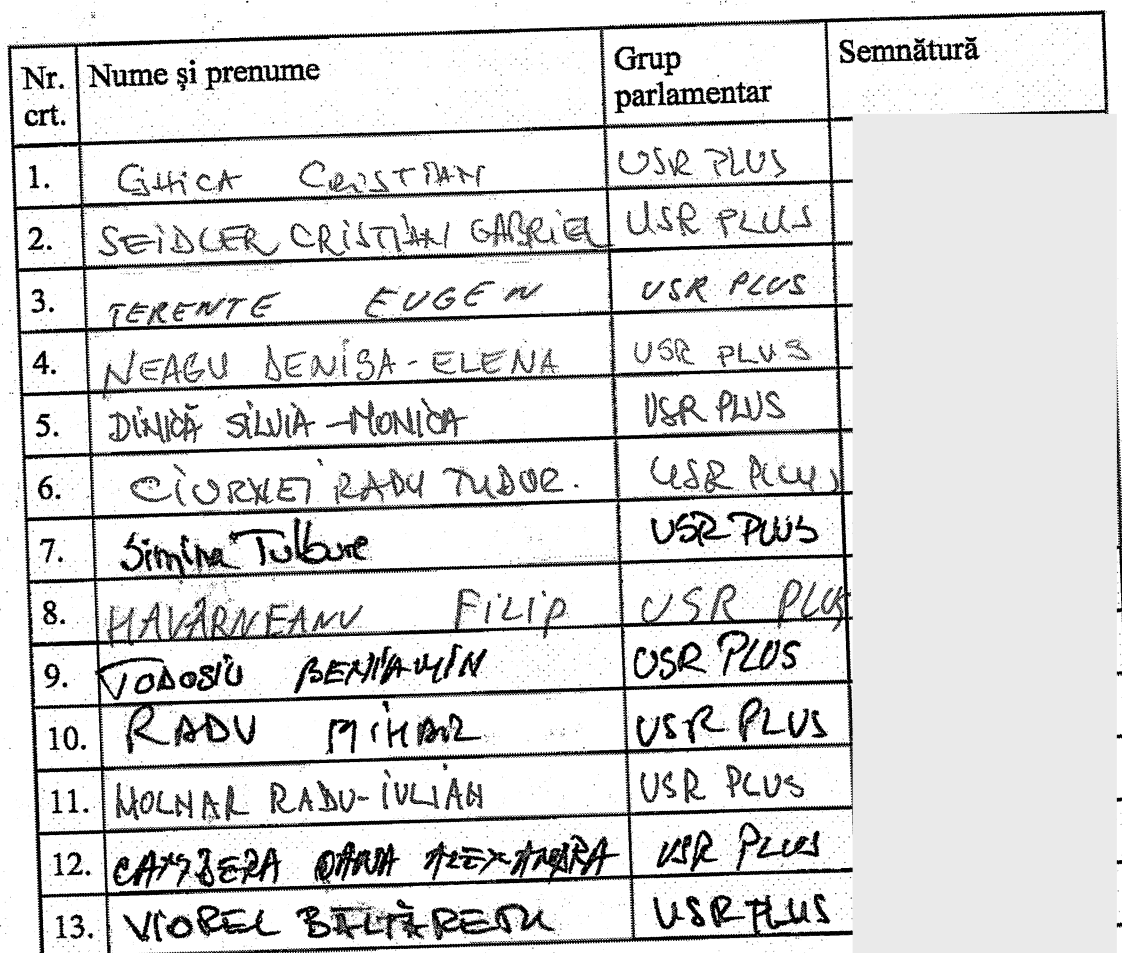 Nr. crt. Nume și prenume Grup parlamentar Semnătură
1. GHICA CRISTIAN USR PLUS
2. SEIDLER CRISTIAN GABRIEL USR PLUS
3. TERENTE EUGEN USR PLUS
4. NEAGU DENISA-ELENA USR PLUS
5. DINICĂ SILVIA-MONICA USR PLUS
6. CIORNEI RADU TUDOR. USR PLUS
7. Simina Tulbure USR PLUS
8. HAVÂRNEANU FILIP USR PLUS
9. TODOSIU BENIAMIN USR PLUS
10. RADU MIHAIL USR PLUS
11. MOLNAR RADU-IULIAN USR PLUS
12. CAMBERA OANA ALEXANDRA USR PLUS
13. VIOREL BĂLTĂREȚU USR PLUS